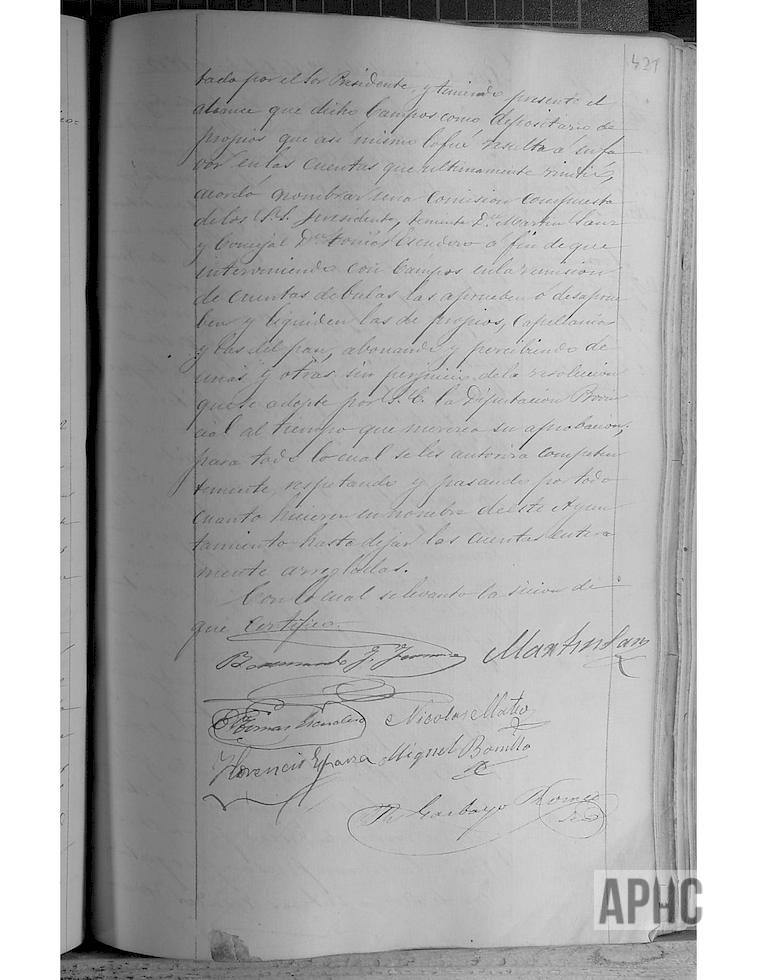 421
tado por el Sor Presidente, y teniendo presente el
alcance que dicho Campos como depositario de
propios que asi mismo lo fué resulta á su fa
vor en las cuentas que ultimamente rindió,
acordó nombrar una comision compuesta
de los S.S. Presidente, teniente Dn Martin Sanz
y Concejal Dn Tomas Escudero á fin de que
interviniendo con Campos en la rendision
de cuentas de bulas las aprueben ó desaprue
ben y liquiden las de propios, Capellanias
y las del pan, abonando y percibiendo de
unas y otras sin perjuicio de la resolucion
que se adopte por S.E. la Diputacion Provin
cial al tiempo que merezca su aprobacion,
para todo lo cual se les autoriza competen
temente, respetando y pasando por todo
cuanto hicieren en nombre de este Ayun
tamiento hasta dejar las cuentas entera
mente arregladas.
Con lo cual se levantó la sesion de
que certifico.
Martin Sanz
Tomas Escudero Nicolas Mateo
Florencio Esparza Miguel Bonilla
Garbayo
APHC